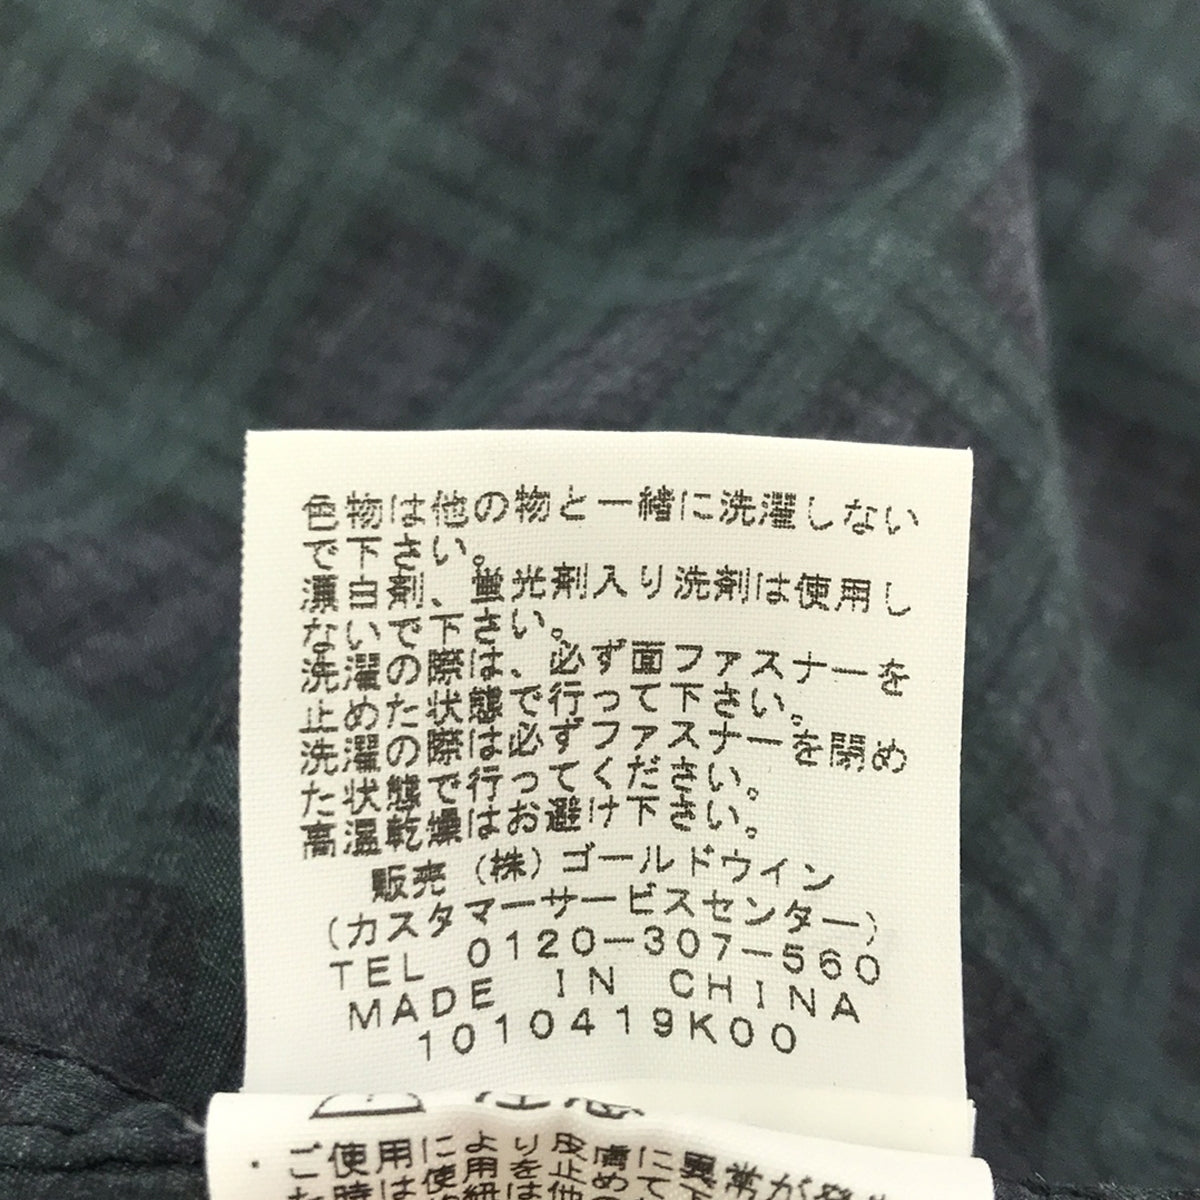 色物は他の物と一緒に洗濯しない
で下さい。
漂白剤、蛍光剤入り洗剤は使用し
ないで下さい。
洗濯の際は、必ず面ファスナーを
止めた状態で行って下さい。
洗濯の際は必ずファスナーを閉め
た状態で行ってください。
高温乾燥はお避け下さい。
販売（株）ゴールドウイン
（カスタマーサービスセンター）
TEL 0120-307-560
MADE IN CHINA
1010419K00
注意
・ご使用により皮膚に異常が発生